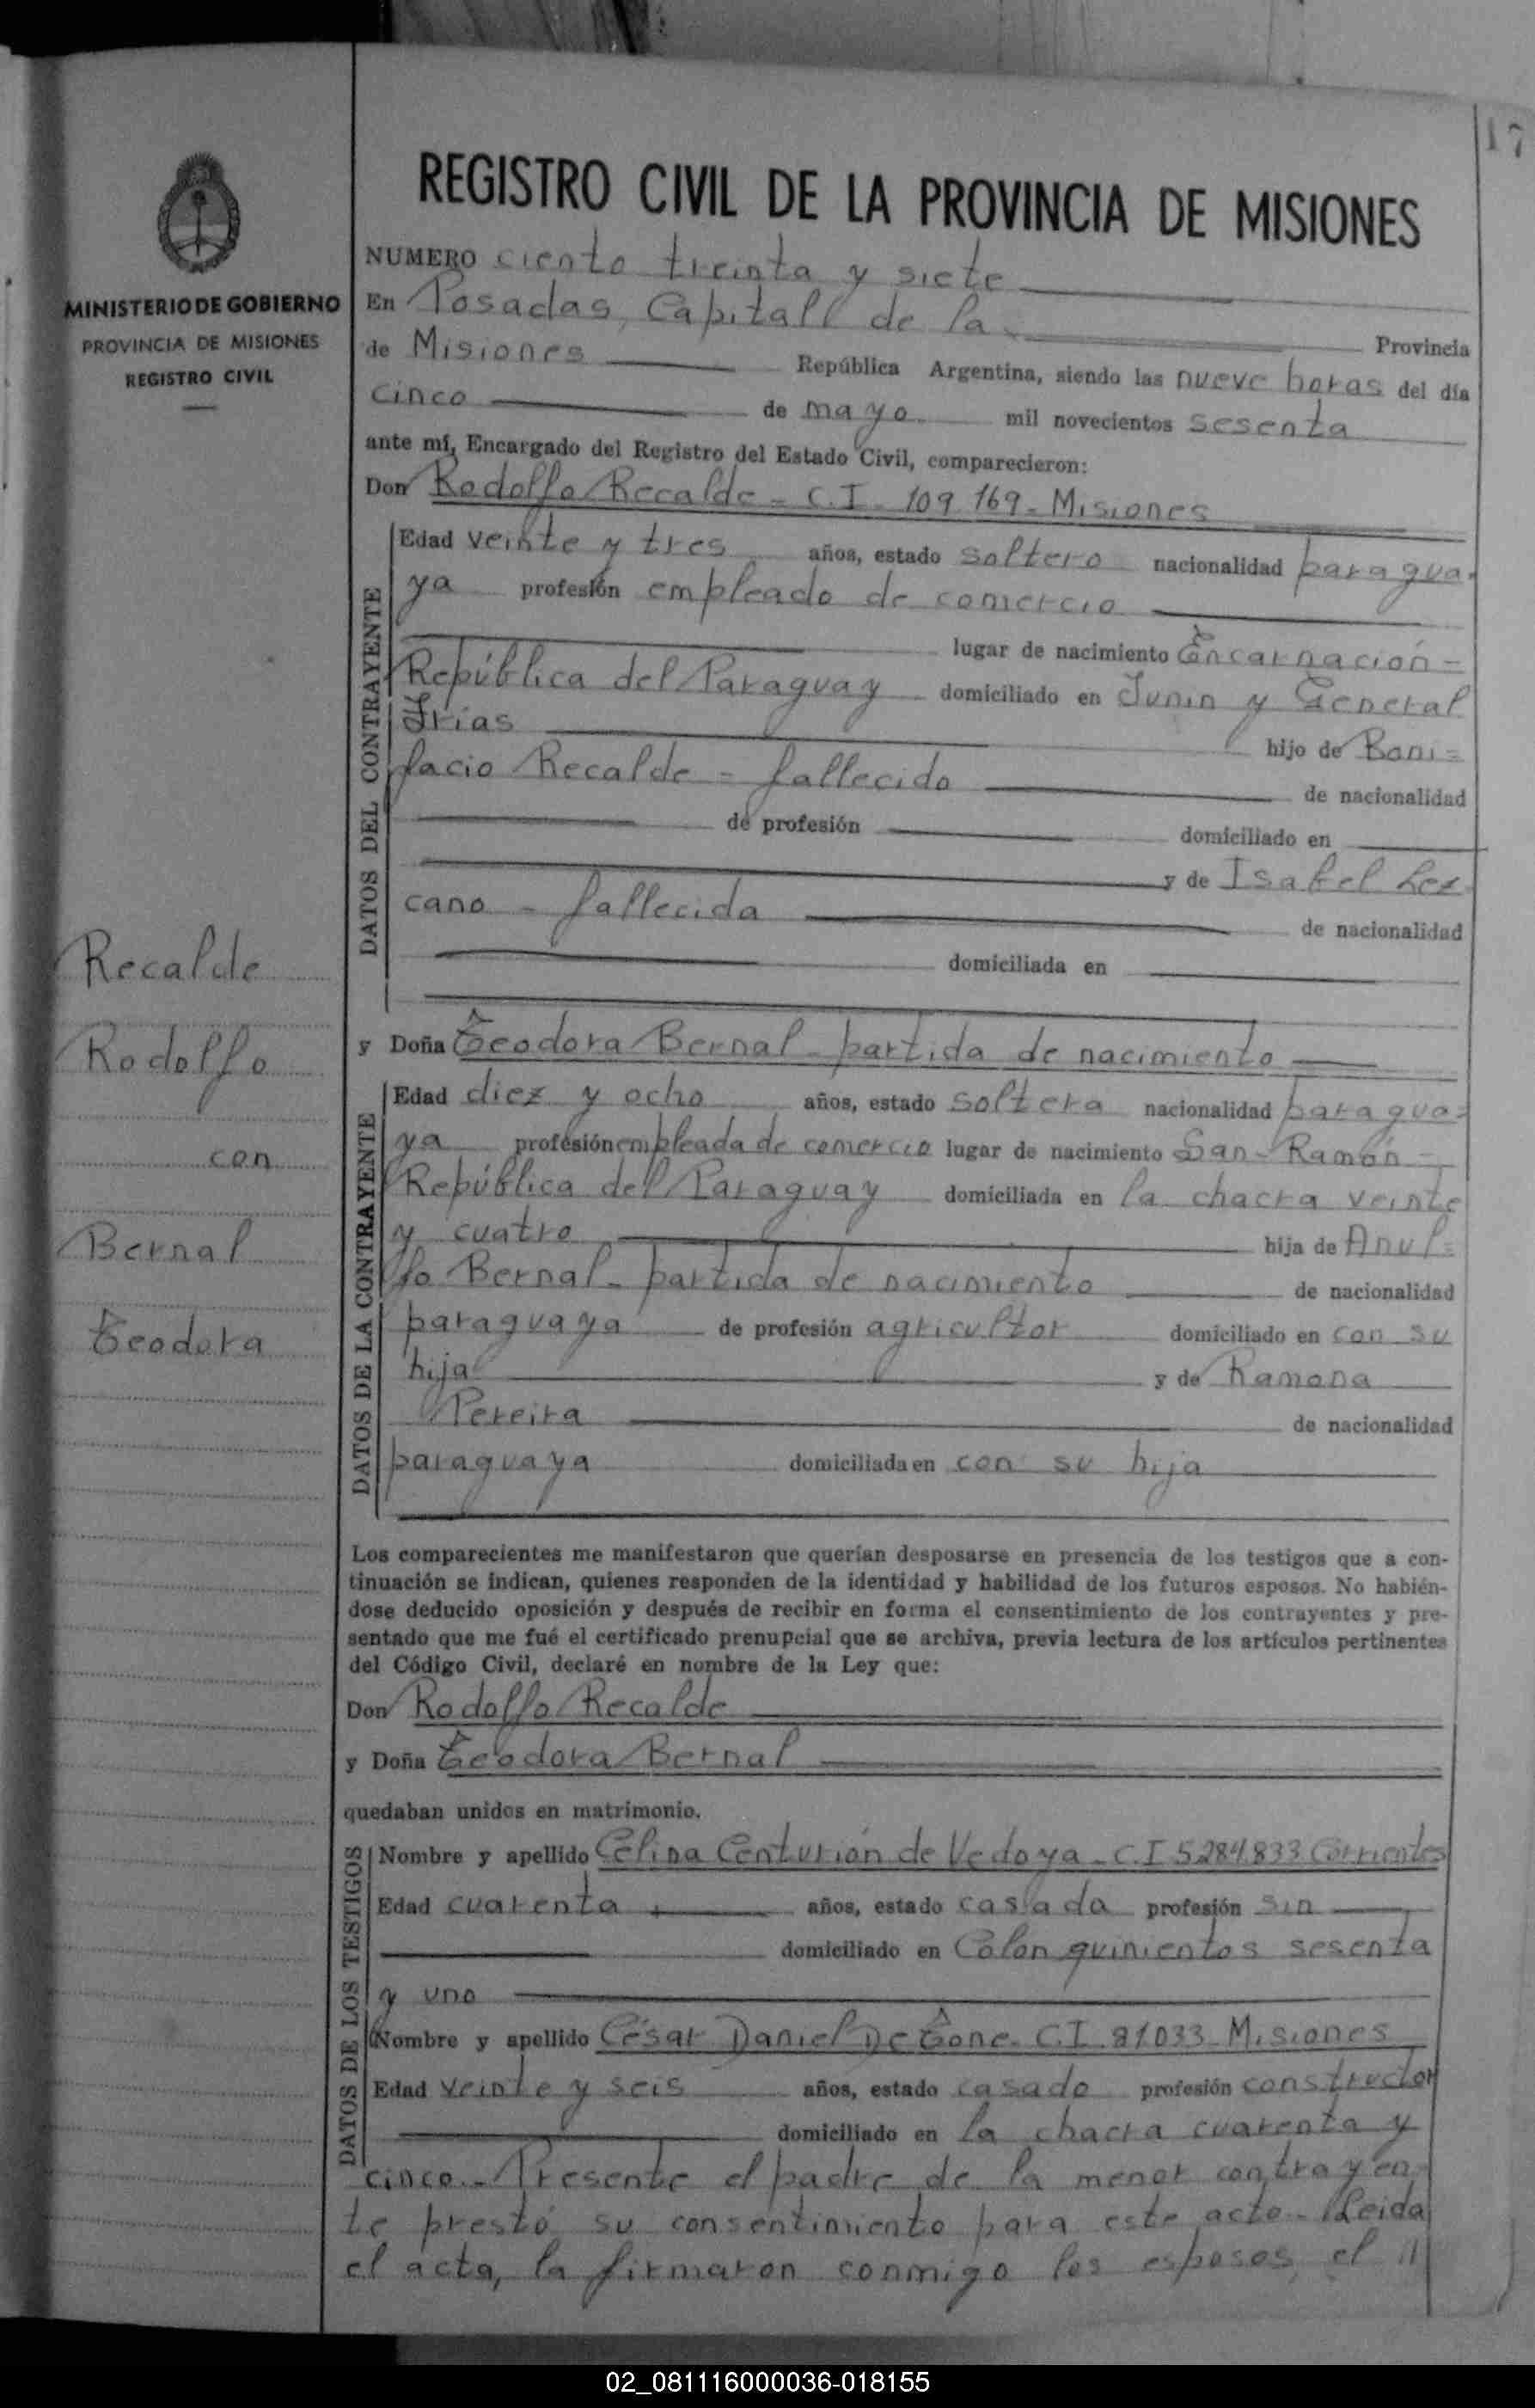 17
REGISTRO CIVIL DE LA PROVINCIA DE MISIONES
MINISTERIO DE GOBIERNO
PROVINCIA DE MISIONES
REGISTRO CIVIL
NUMERO ciento treinta y siete
En Posadas, Capitall de la Provincia
de Misiones República Argentina, siendo las nueve horas del día
cinco de mayo mil novecientos sesenta
ante mí, Encargado del Registro del Estado Civil, comparecieron:
Don Rodolfo Recalde - C.I. 109.169 - Misiones
DATOS DEL CONTRAYENTE
Edad veinte y tres años, estado soltero nacionalidad paragua-
ya profesión empleado de comercio
lugar de nacimiento Encarnación -
República del Paraguay domiciliado en Junín y General
Frías hijo de Boni=
facio Recalde = fallecido de nacionalidad
de profesión domiciliado en
y de Isabel Lez-
cano - fallecida de nacionalidad
domiciliada en
Recalde
Rodolfo
con
Bernal
Teodora
y Doña Teodora Bernal - partida de nacimiento
DATOS DE LA CONTRAYENTE
Edad diez y ocho años, estado soltera nacionalidad paragua=
ya profesión empleada de comercio lugar de nacimiento San Ramón -
República del Paraguay domiciliada en la chacra veinte
y cuatro hija de Anul=
fo Bernal - partida de nacimiento de nacionalidad
paraguaya de profesión agricultor domiciliado en con su
hija y de Ramona
Pereira de nacionalidad
paraguaya domiciliada en con su hija
Los comparecientes me manifestaron que querían desposarse en presencia de los testigos que a con-
tinuación se indican, quienes responden de la identidad y habilidad de los futuros esposos. No habién-
dose deducido oposición y después de recibir en forma el consentimiento de los contrayentes y pre-
sentado que me fué el certificado prenupcial que se archiva, previa lectura de los artículos pertinentes
del Código Civil, declaré en nombre de la Ley que:
Don Rodolfo Recalde
y Doña Teodora Bernal
quedaban unidos en matrimonio.
DATOS DE LOS TESTIGOS
Nombre y apellido Celina Centurión de Vedoya - C.I 5.284.833 Corrientes
Edad cuarenta años, estado casada profesión sin
domiciliado en Colon quinientos sesenta
y uno
Nombre y apellido César Daniel De Tone - C.I. 81033 - Misiones
Edad veinte y seis años, estado casado profesión constructor
domiciliado en la chacra cuarenta y
cinco. - Presente el padre de la menor contrayen-
te prestó su consentimiento para este acto. - Leida
el acta, la firmaron conmigo los esposos, el
02_081116000036-018155